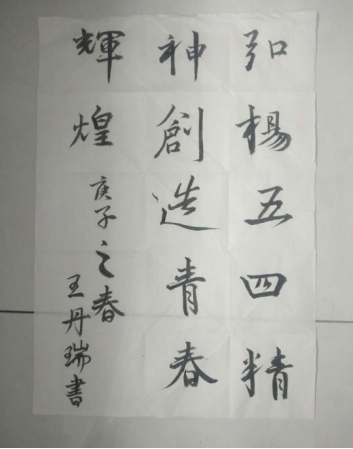 弘楊五四精
神創造青春
輝煌
庚子之春
王丹瑞書